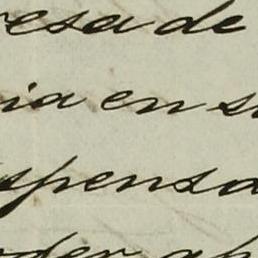 resa de
ia en s
spensa
oder ab